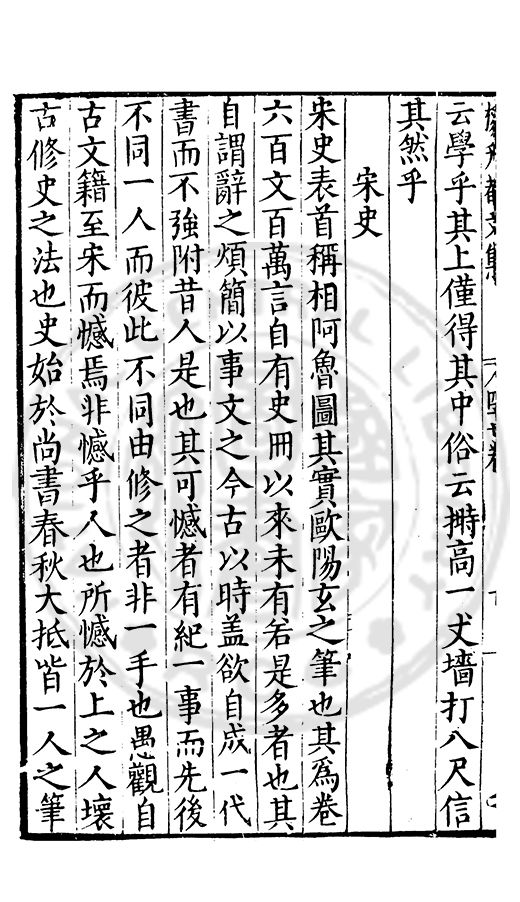 云學乎其上僅得其中俗云擲高一丈墻打八尺信
其然乎
宋史
宋史表首稱相阿魯圖其實歐陽玄之筆也其為卷
六百文百萬言自有史冊以來未有若是多者也其
自謂辭之煩簡以事文之今古以時盖欲自成一代
書而不強附昔人是也其可憾者有紀一事而先後
不同一人而彼此不同由修之者非一手也愚觀自
古文籍至宋而憾焉非憾乎人也所憾於上之人壞
古修史之法也史始於尚書春秋大抵皆一人之筆